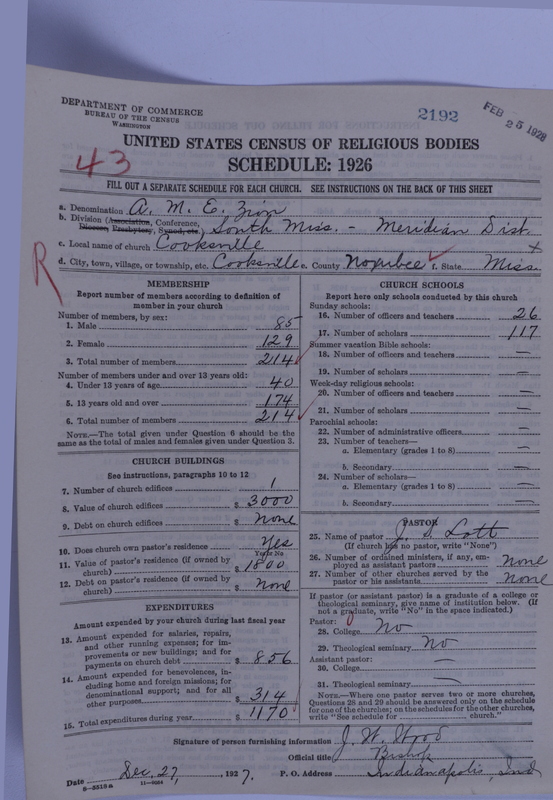 DEPARTMENT OF COMMERCE
BUREAU OF THE CENSUS
WASHINGTON
2192
FEB 25 1928
43
UNITED STATES CENSUS OF RELIGIOUS BODIES
SCHEDULE: 1926
FILL OUT A SEPARATE SCHEDULE FOR EACH CHURCH. SEE INSTRUCTIONS ON THE BACK OF THIS SHEET
a. Denomination A. M. E. Zion
b. Division (Association, Conference, Diocese, Presbytery, Synod, etc.) South Miss. - Meridian Dist.
c. Local name of church Cooksville
R
d. City, town, village, or township, etc. Cooksville e. County Noxubee f. State Miss.
MEMBERSHIP
Report number of members according to definition of
member in your church
Number of members, by sex:
1. Male 85
2. Female 129
3. Total number of members 214
Number of members under and over 13 years old:
4. Under 13 years of age 40
5. 13 years old and over 174
6. Total number of members 214
NOTE.—The total given under Question 6 should be the
same as the total of males and females given under Question 3.
CHURCH BUILDINGS
See instructions, paragraphs 10 to 12
7. Number of church edifices 1
8. Value of church edifices $ 3000
9. Debt on church edifices $ None
10. Does church own pastor's residence Yes
Yes or No
11. Value of pastor's residence (if owned by
church) $ 1800
12. Debt on pastor's residence (if owned by
church) $ None
EXPENDITURES
Amount expended by your church during last fiscal year
13. Amount expended for salaries, repairs,
and other running expenses; for im-
provements or new buildings; and for
payments on church debt $ 856
14. Amount expended for benevolences, in-
cluding home and foreign missions; for
denominational support; and for all
other purposes $ 314
15. Total expenditures during year $ 1170
CHURCH SCHOOLS
Report here only schools conducted by this church
Sunday schools:
16. Number of officers and teachers 26
17. Number of scholars 117
Summer vacation Bible schools:
18. Number of officers and teachers —
19. Number of scholars —
Week-day religious schools:
20. Number of officers and teachers —
21. Number of scholars —
Parochial schools:
22. Number of administrative officers —
23. Number of teachers—
a. Elementary (grades 1 to 8) —
b. Secondary —
24. Number of scholars—
a. Elementary (grades 1 to 8) —
b. Secondary —
PASTOR
25. Name of pastor Lott
(If church has no pastor, write "None")
26. Number of ordained ministers, if any, em-
ployed as assistant pastors None
27. Number of other churches served by the
pastor or his assistants None
If pastor (or assistant pastor) is a graduate of a college or
theological seminary, give name of institution below. (If
not a graduate, write "No" in the space indicated.)
Pastor:
28. College No
29. Theological seminary No
Assistant pastor:
30. College —
31. Theological seminary —
NOTE.—Where one pastor serves two or more churches,
Questions 28 and 29 should be answered only on the schedule
for one of the churches; on the schedules for the other churches,
write "See schedule for church."
Signature of person furnishing information J. W. Wood
Official title Bishop
Date Dec. 27, 1927. P. O. Address Indianapolis, Ind
8-5518a